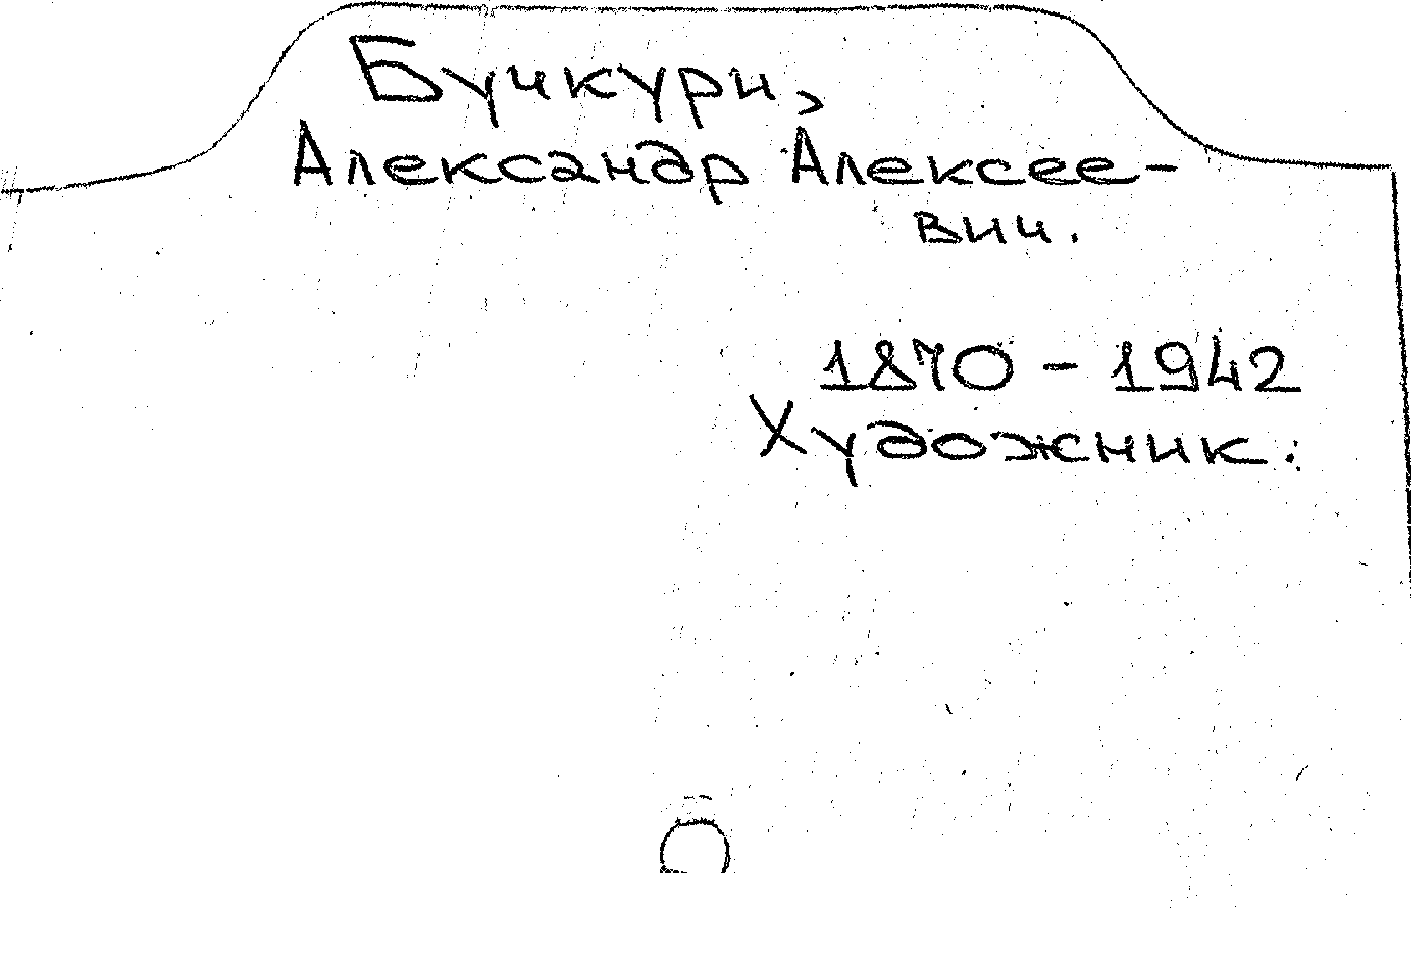 Бучкури,
Александр Алексее-
вич.
1870 - 1942
Художник.